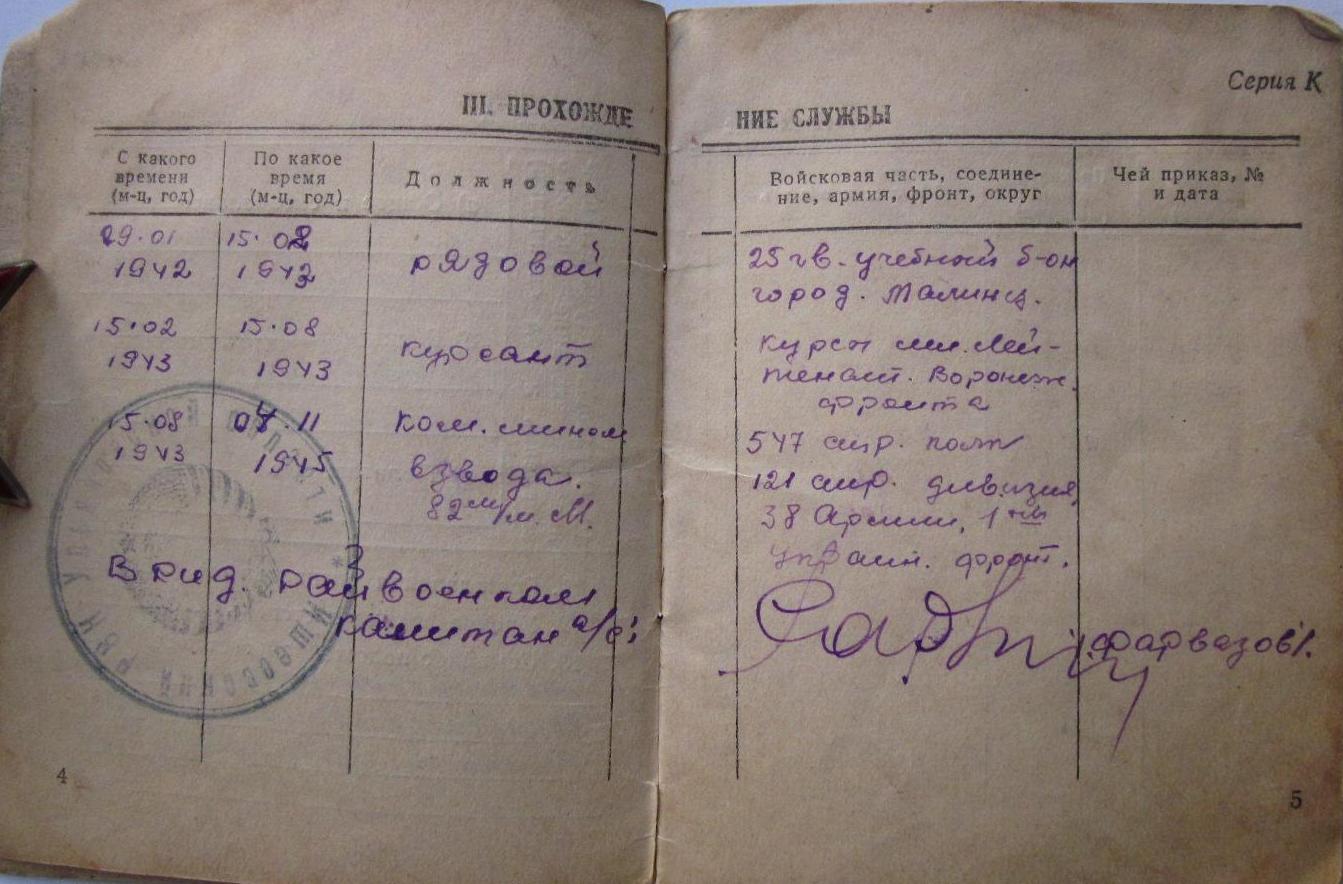 Серия К
III. ПРОХОЖДЕ
НИЕ СЛУЖБЫ
С какого времени (м-ц, год)
По какое время (м-ц, год)
Должность
Войсковая часть, соединение, армия, фронт, округ
Чей приказ, № и дата
29.01 1942
15.02 1943
рядовой
25 гв. учебный б-он
город.
15.02 1943
15.08 1943
курсант
курсы мл. лей-
тенант. Воронеж.
фронта
15.08 1943
04.11 1945
ком. мином
взвода.
82 мм
547 стр. полк
121 стр. дивизия
38 Армии, 1
Украин. фронт.
Врид. райвоенком
капитан а/с:
Фарвазов
4
5